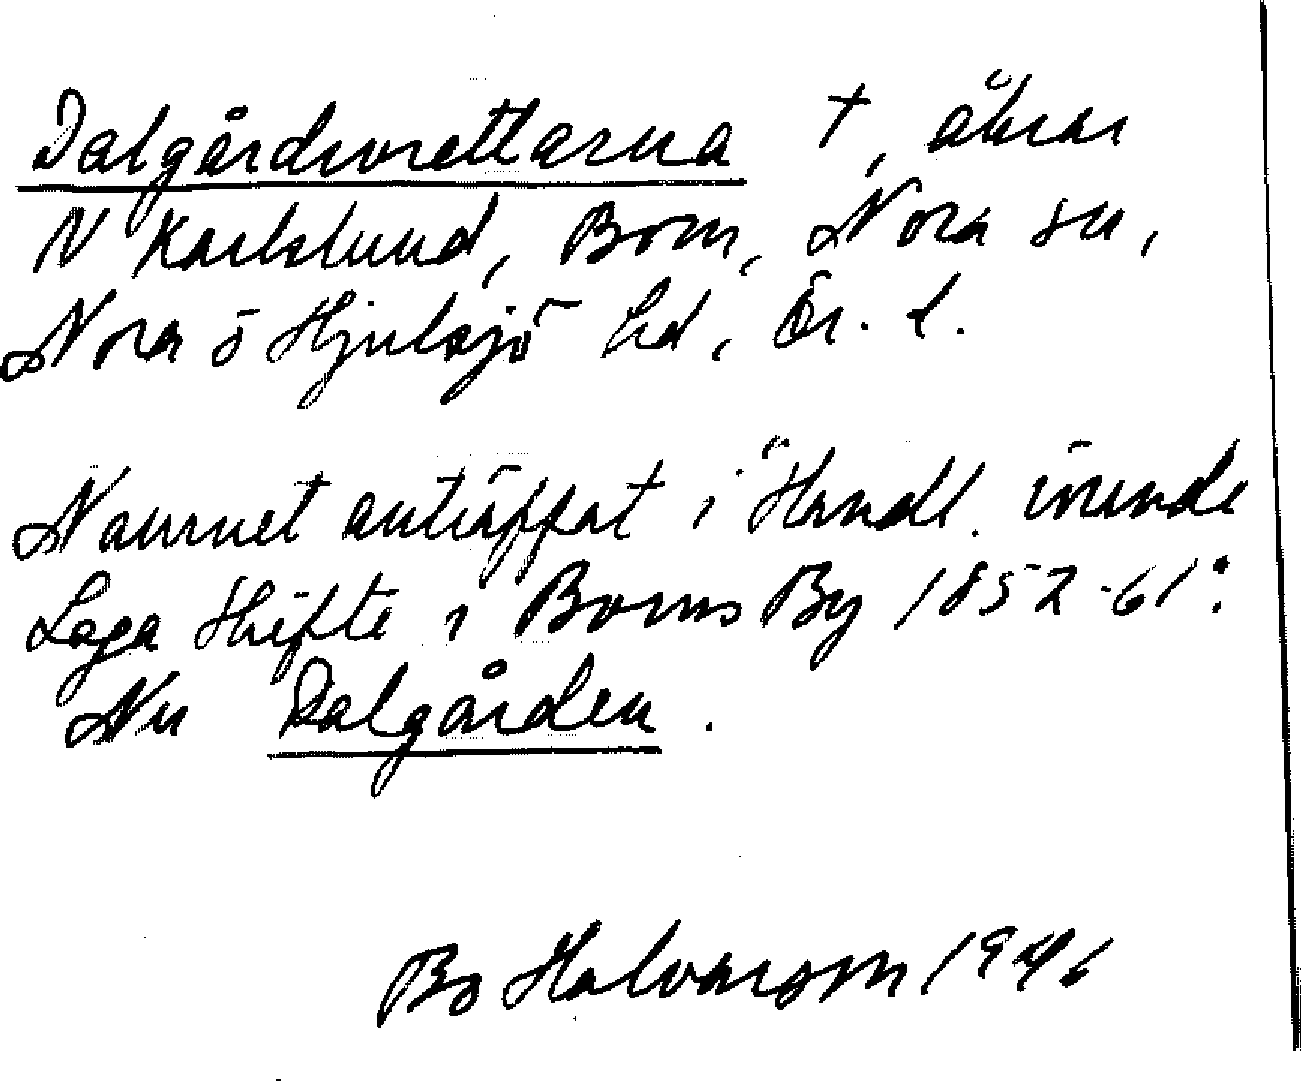 Dalgårdsvretarna †, åkrar
N Karlslund, Bom, Nora sn,
Nora o Hjulsjö hd, Ör. l.
Namnet anträffat i Handl. rörande
Laga Skifte i Boms By 1852-61:
Nu Dalgården.
Bo Halvarson 1946